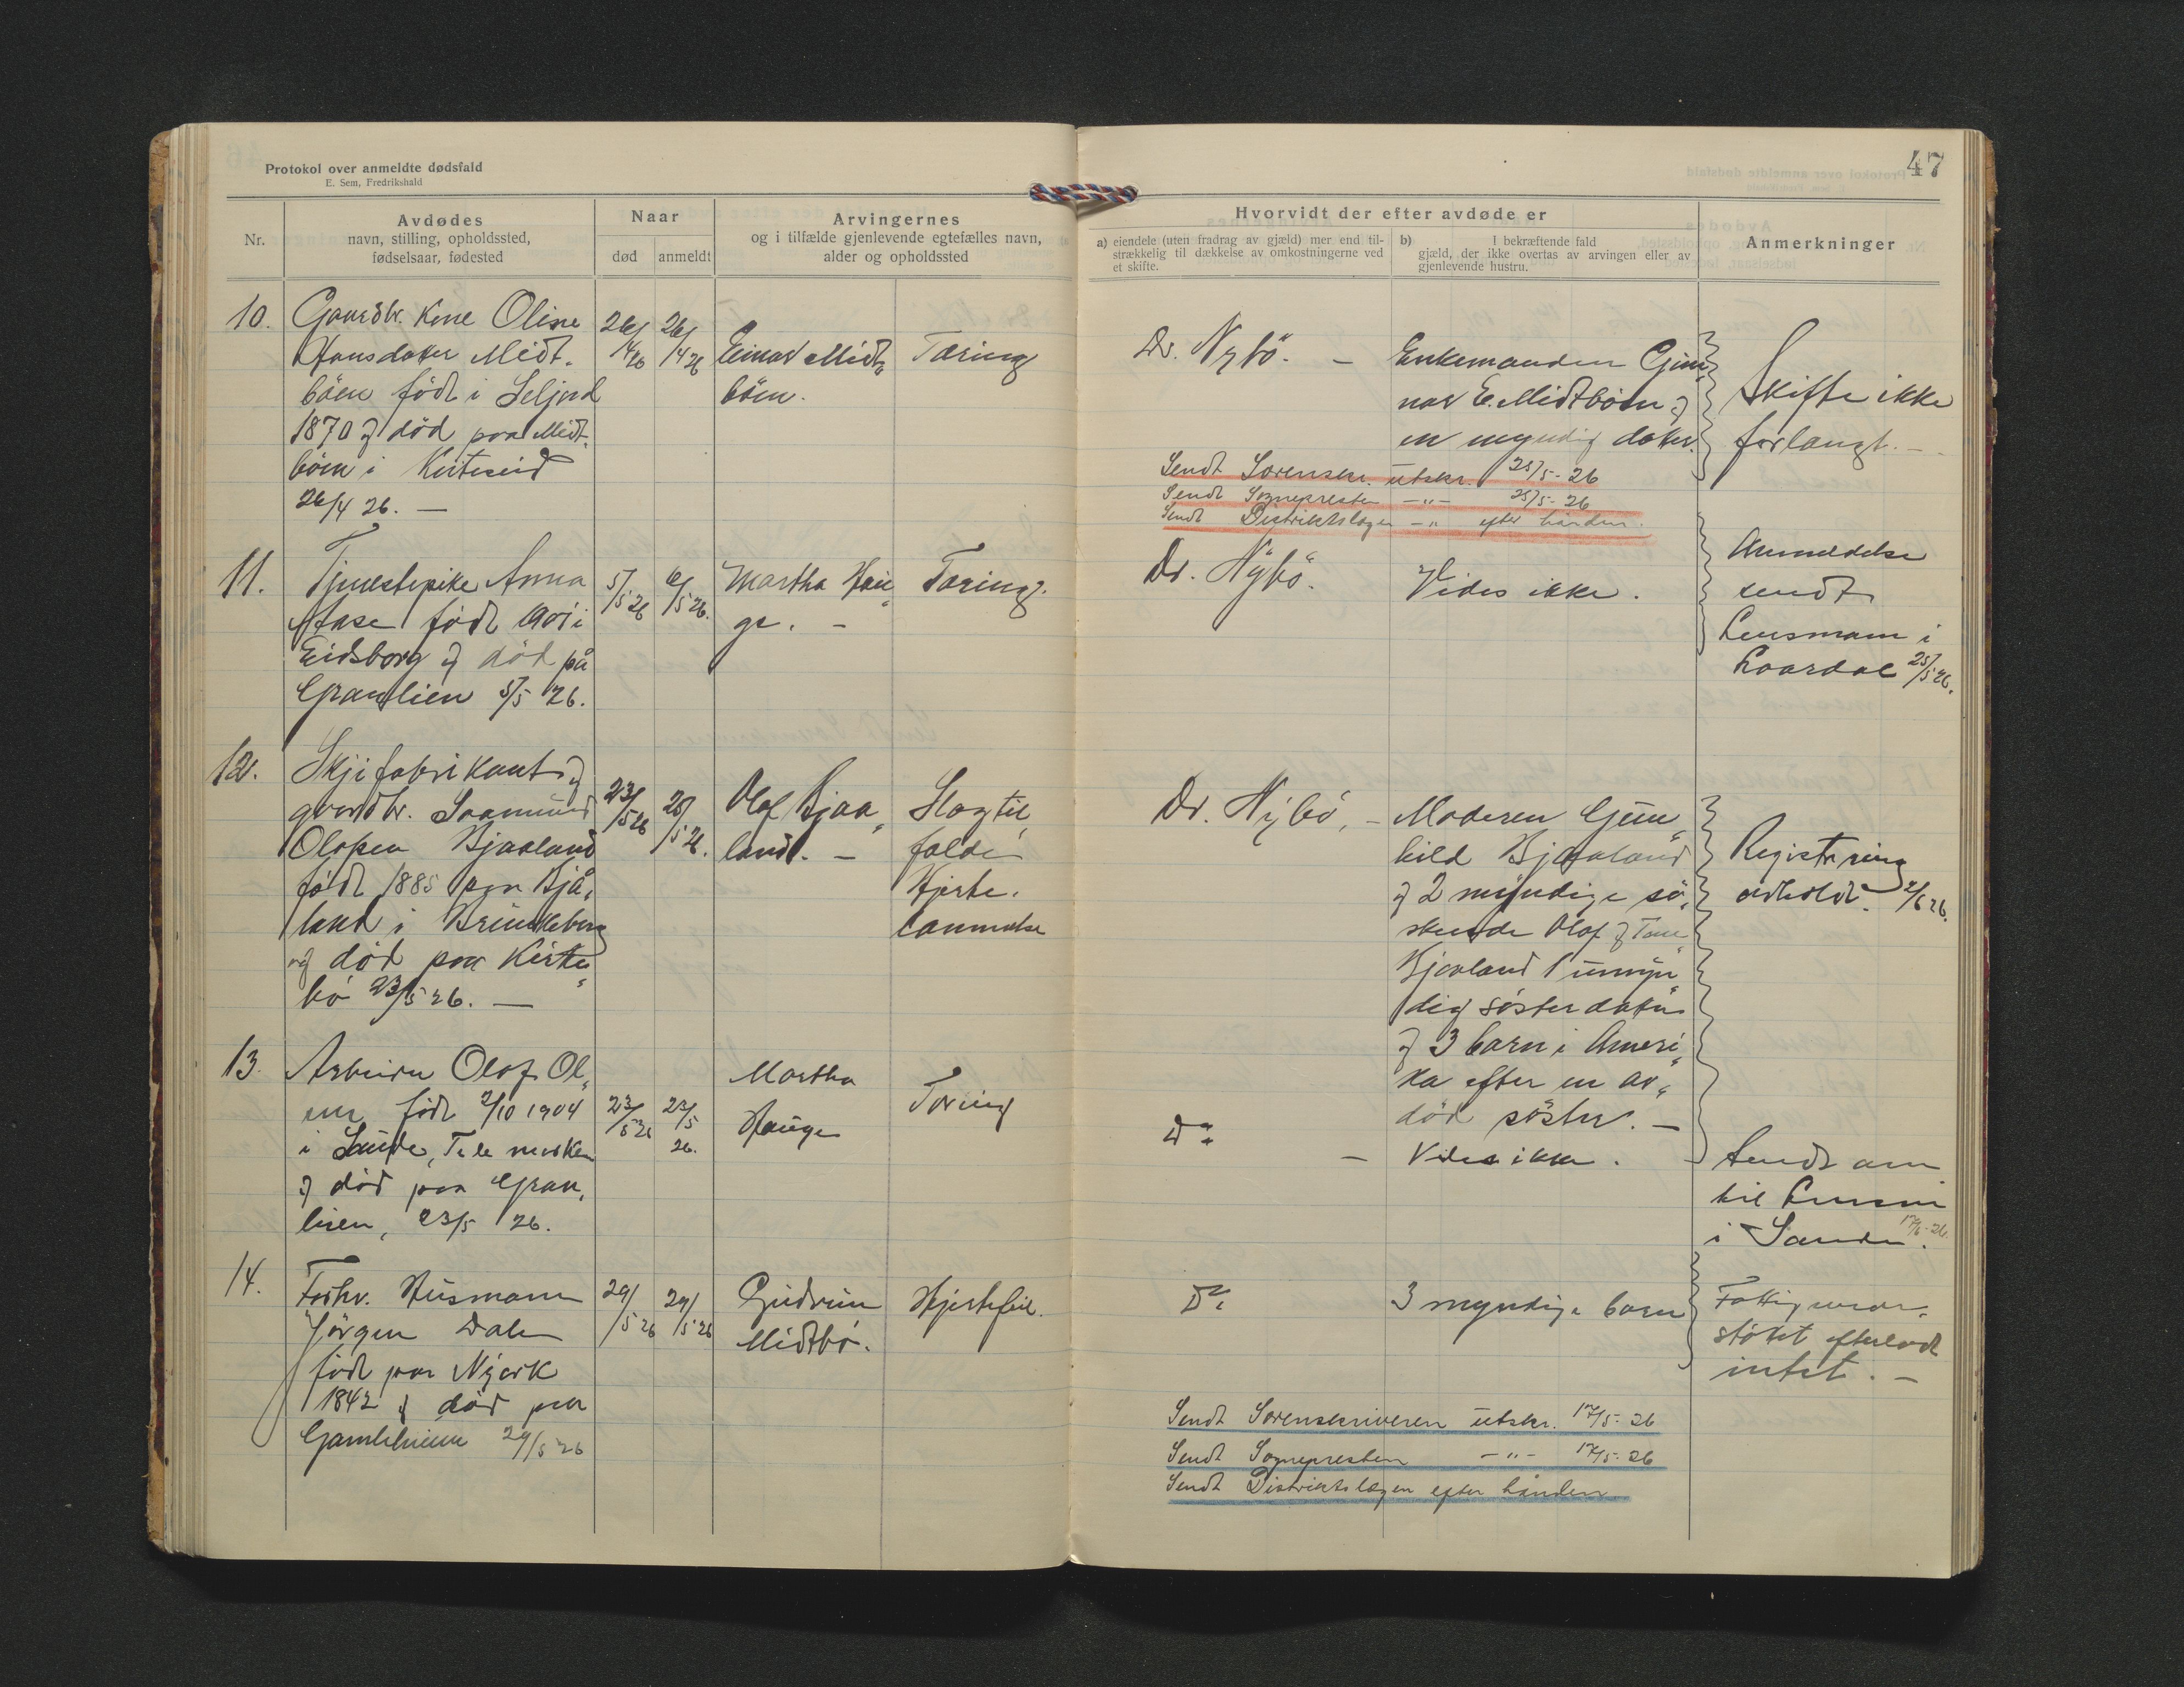 Protokol over anmeldte dødsfald
E. Sem, Fredrikshald
47
Nr.
Avdødes
navn, stilling, opholdssted,
fødselsaar, fødested
Naar
død
anmeldt
Arvingernes
og i tilfælde gjenlevende egtefælles navn,
alder og opholdssted
Hvorvidt der efter avdøde er
a) eiendele (uten fradrag av gjæld) mer end til-
strækkelig til dækkelse av omkostningerne ved
et skifte.
b) I bekræftende fald
gjæld, der ikke overtas av arvingen eller av
gjenlevende hustru.
Anmerkninger
10.
Gaardbr. Kone Oline
Hansdater Midt-
böen födt i Seljord
1870 og död paa Midt-
böen i Kviteseid
26/4 26. —
26/4 26
26/4 26
Einar Midt„
böen.
Tæring
Dr. Nybö. —
Enkemanden Gun„
nar E. Midtböen og
en myndig dater.
Skifte ikke
forlangt. —
Sendt Sorenskr. utskr. 25/5-26
Sendt Sognepresten —„— 25/5-26
Sendt Distriktslægen —„ efter hånden.
11.
Tjenestepike Anna
Aase födt 1901 i
Eidsborg og död på
Granlien 5/5 26.
5/5 26
6/5 26.
Martha Hau„
ge. —
Tæring.
Dr. Nybö.
Vides ikke.
Anmeldelse
sendt
Lensmann i
Laardal 25/5 26.
12.
Skjifabrikant og
gaardbr. Saamund
Olafsen Bjaaland
födt 1885 paa Bjå„
land i Brunkeberg
og död paa Kirke„
bö 23/5 26. —
23/5 26
25/5 26.
Olaf Bjaa„
land. —
Slagtil„
fælde
Hjerte.
lammelse
Dr. Nybö, —
Moderen Gun„
hild Bjaaland
og 2 myndige sö„
skende Olaf og Tone
Bjaaland 1 umyn„
dig sösterdater
og 3 barn i Ameri„
ka efter en av„
död söster. —
Registrering
avholdt 2/6 26.
13.
Arbeider Olaf Ol„
sen födt 2/10 1904
i Saude, Telemarken
og död paa Gran„
lien, 23/5 26.
23/5 26
23/5 26.
Martha
Hauge
Tæring
Do —
Vides ikke.
Sendt anm
til Lensm
i Saude. 17/6-26.
14.
Forhv. Husmann
Jörgen Dalen
födt paa
1842 og död paa
29/5 26
29/5 26
29/5 26
Gudrun
Midtbö.
Hjertefeil.
Do
3 myndige barn
Fattigunder„
stöttet efterlod
intet. —
Sendt Sorenskriveren utskr. 17/5-26
Sendt Sognepresten —„— 17/5-26
Sendt Distriktslægen efter hånden